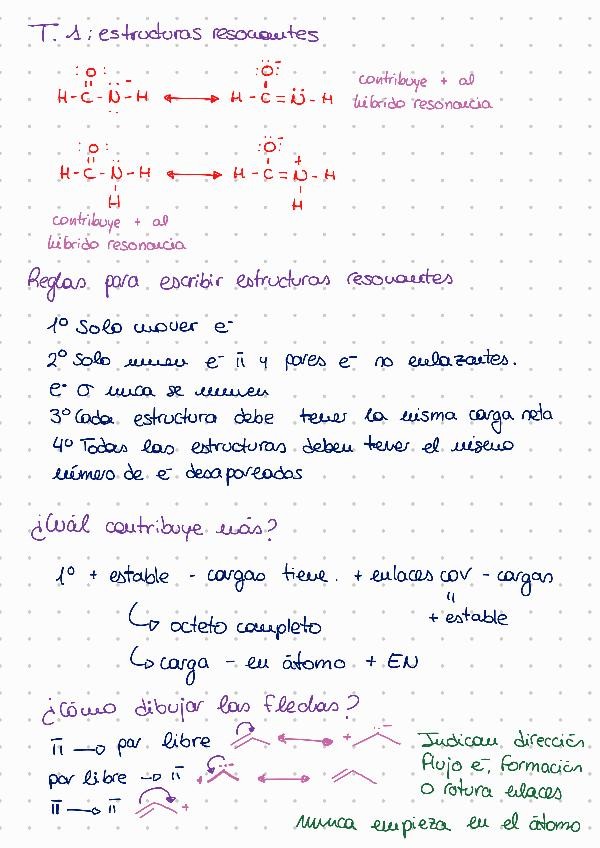 T. 1: estructuras resonantes
:O: :O:⁻
H-C-N-H ⟷ H-C=N-H
contribuye + al
híbrido resonancia
:O: :O:⁻
H-C-N-H ⟷ H-C=N-H
H H
contribuye + al
híbrido resonancia
Reglas para escribir estructuras resonantes
1º Solo mover e⁻
2º Solo mueven e⁻ π y pares e⁻ no enlazantes.
e⁻ σ nunca se mueven
3º Cada estructura debe tener la misma carga neta
4º Todas las estructuras deben tener el mismo
número de e⁻ desapareados
¿Cuál contribuye más?
1º + estable - cargas tiene. + enlaces cov - cargas
"
+ estable
↳ octeto completo
↳ carga - en átomo + EN
¿Cómo dibujar las flechas?
π → par libre ⟷ +
par libre → π ⟷
π → π +
Indican dirección
flujo e⁻, formación
o rotura enlaces
nunca empieza en el átomo